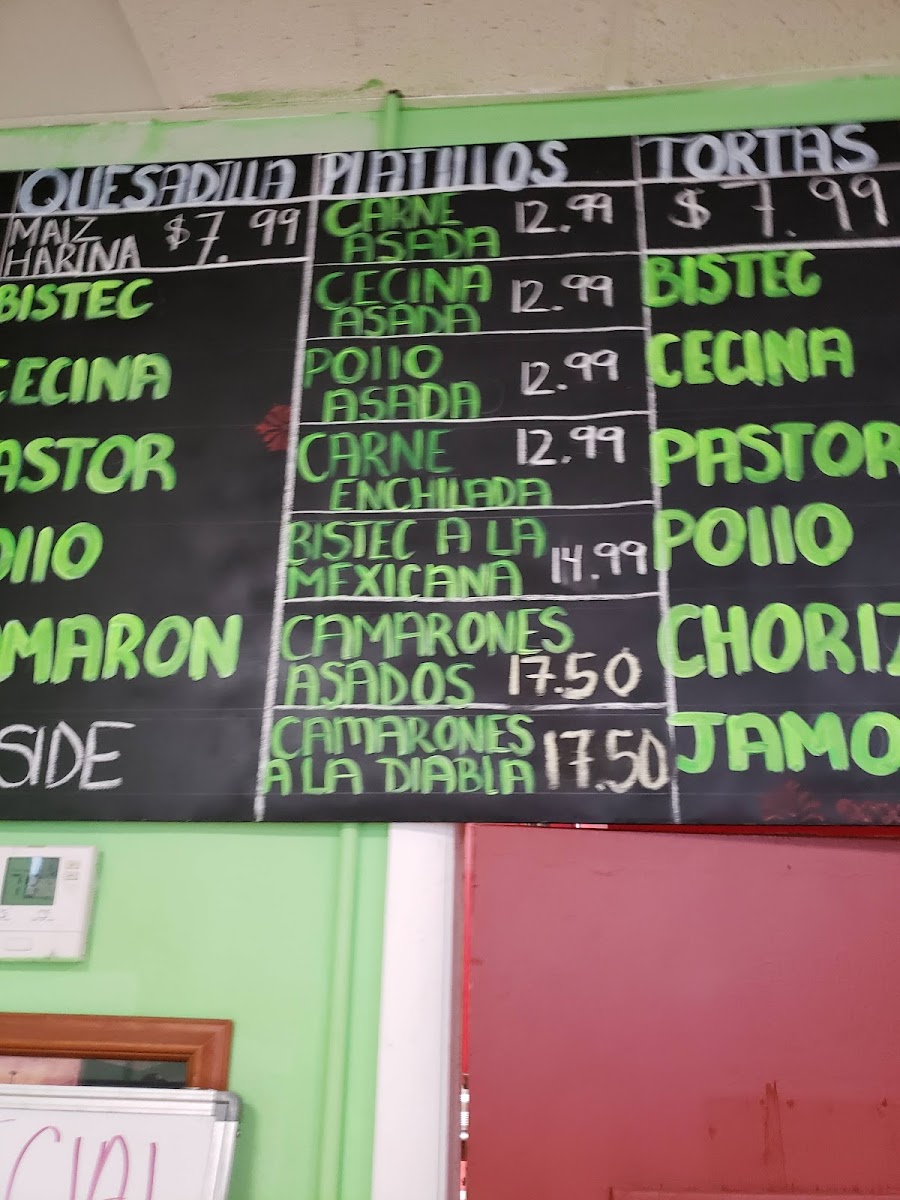 QUESADILLA
MAIZ
HARINA $7.99
BISTEC
CECINA
ASTOR
OLLO
MARON
SIDE
PLATILLOS
CARNE
ASADA 12.99
CECINA
ASADA 12.99
POLLO
ASADA 12.99
CARNE
ENCHILADA 12.99
BISTEC A LA
MEXICANA 14.99
CAMARONES
ASADOS 17.50
CAMARONES
A LA DIABLA 17.50
TORTAS
$7.99
BISTEC
CECINA
PASTOR
POLLO
CHORIZ
JAMO
CIAL